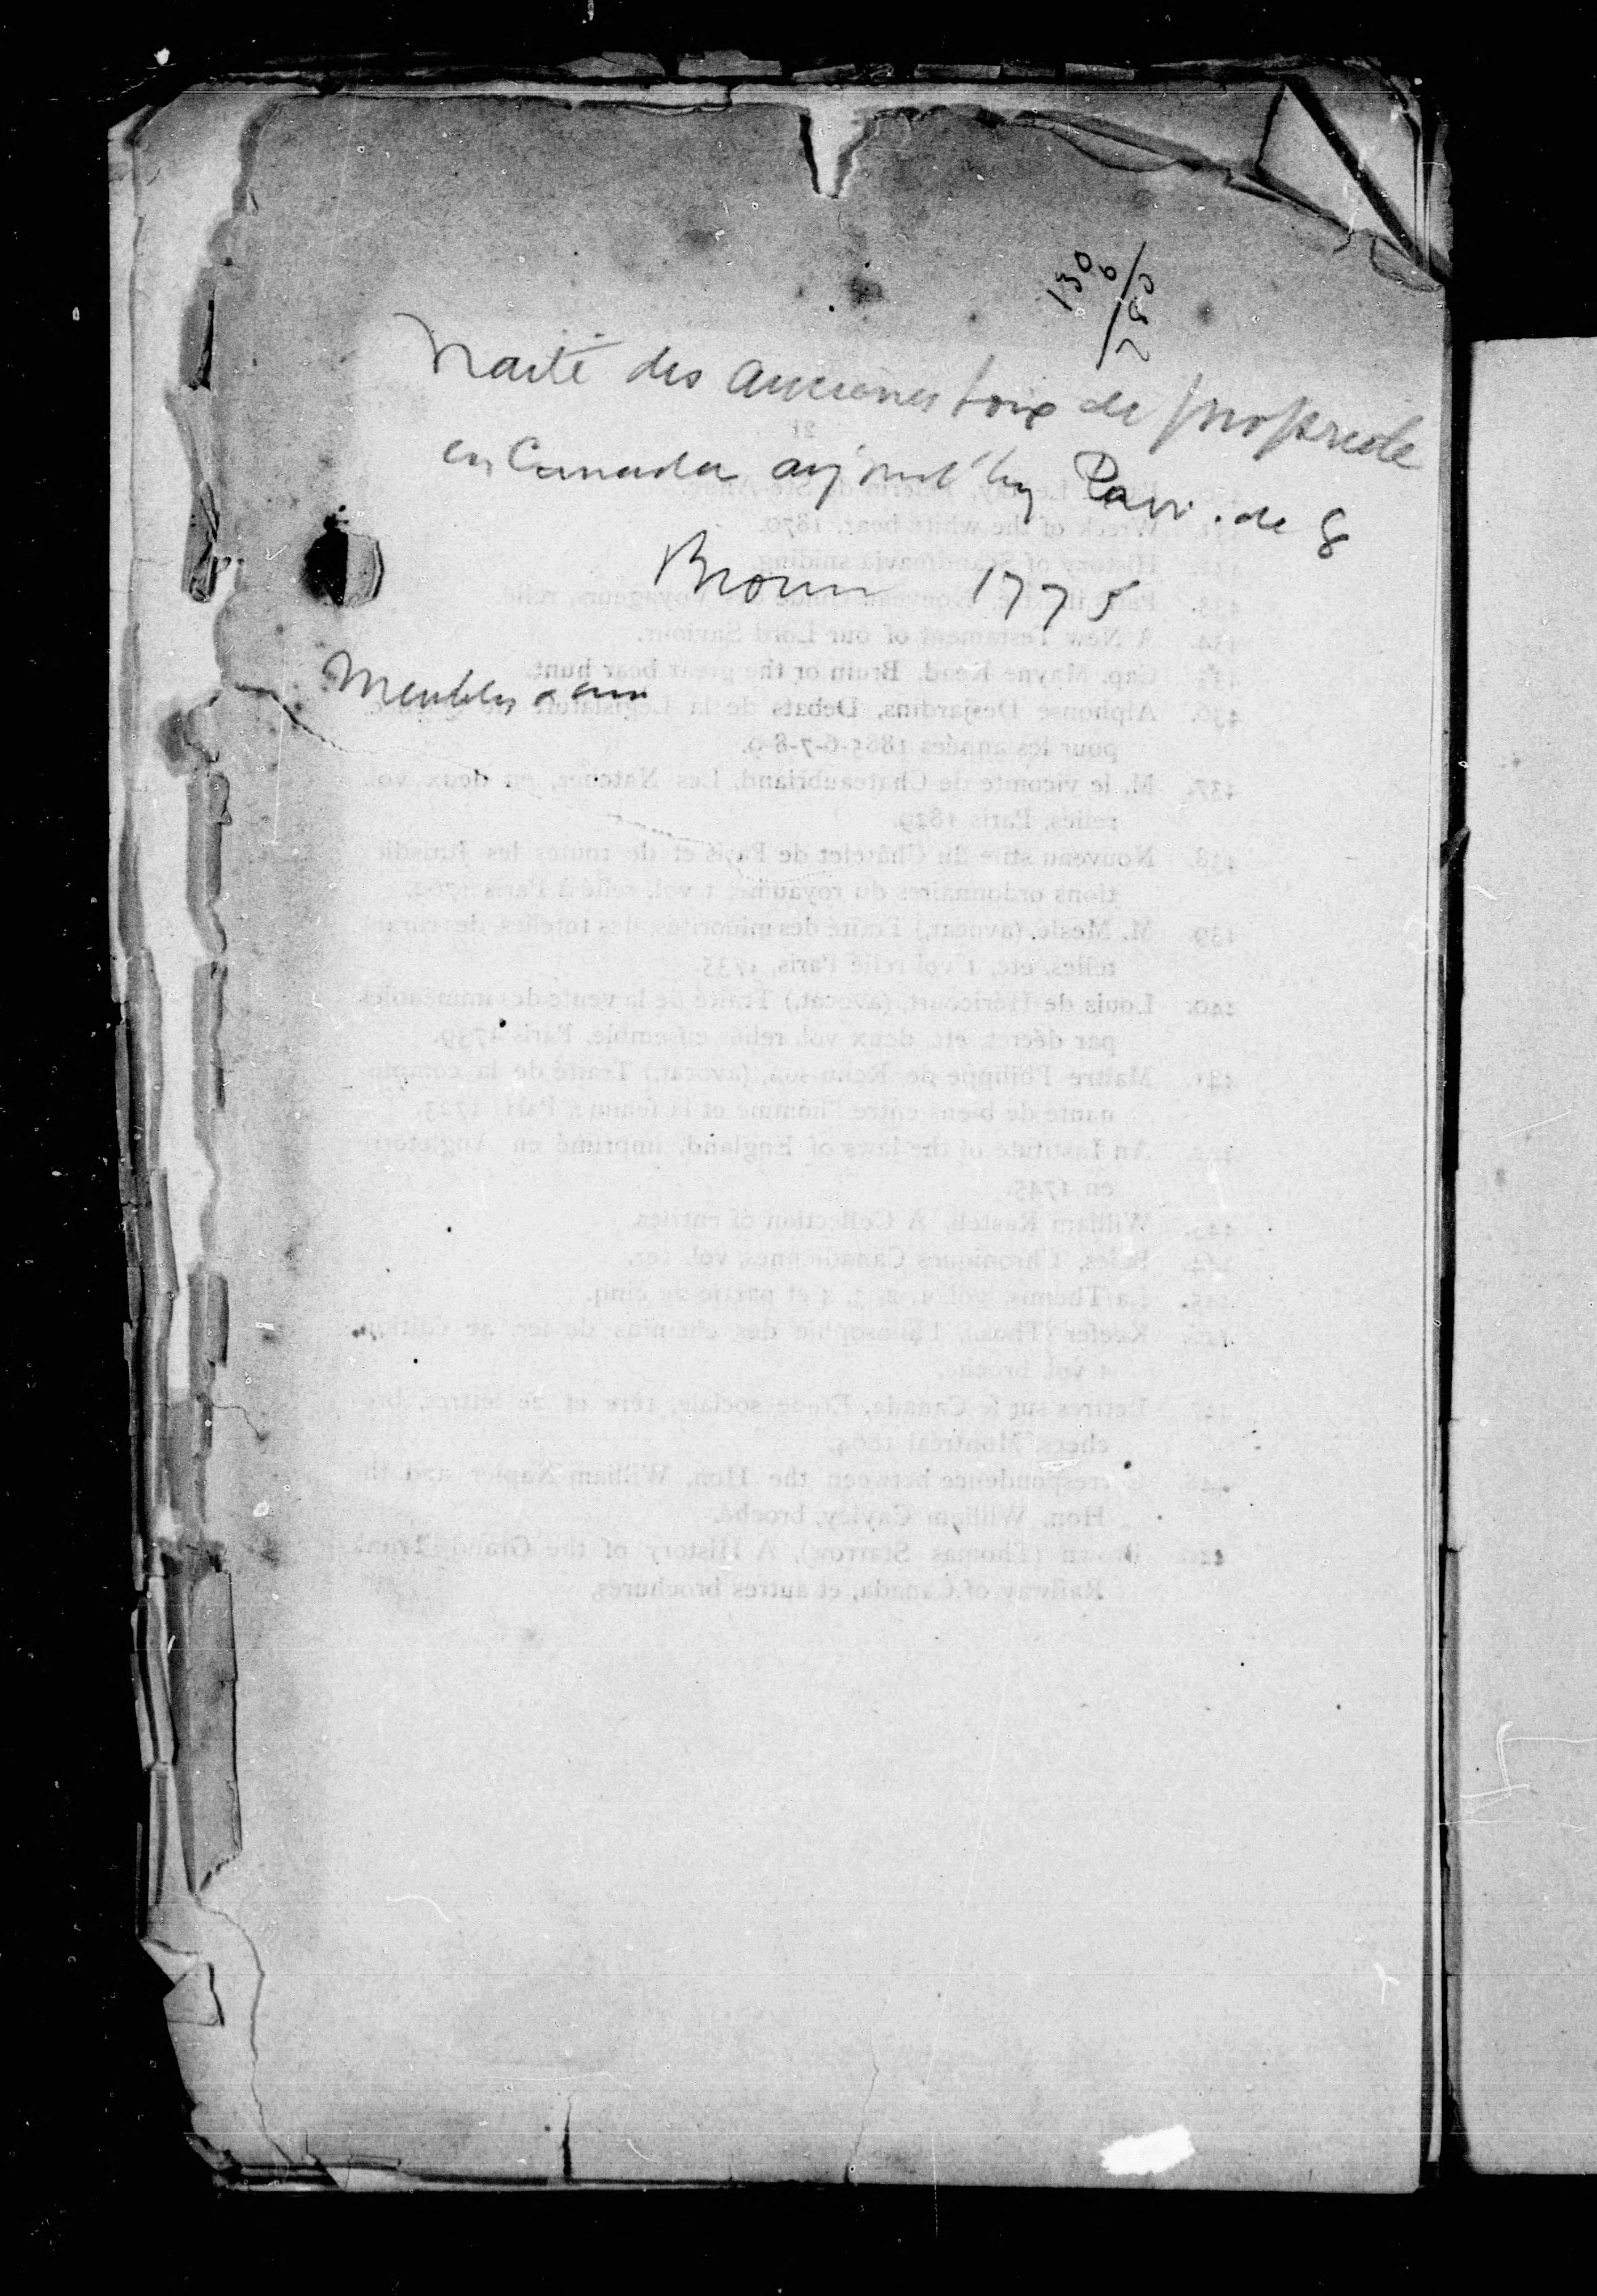 130
6
780
Traité des anciennes Loix de propriété
en Canada aujourd'huy Prov. de Q
Brown 1775
Meubles
21
Wreck of the white bear, 1870.
434. A New Testament of our Lord Saviour.
435. Cap. Mayne Read. Bruin or the great bear hunt.
436. Alphonse Desjardins, Débats de la Législature
pour les années 1865-6-7-8-9.
437. M. le vicomte de Chateaubriand, Les Natchez, en deux vol.
reliés, Paris 1829.
438. Nouveau stile du Châtelet de Paris et de toutes les Jurisdic-
tions ordinaires du royaume, 1 vol. relié
439. M. Meslé, (avocat,) Traité des minorités, des tutelles
telles, etc, 1 vol relié Paris, 1735.
440. Louis de Héricourt, (avocat,) Traité de la vente des immeubles
par décret, etc. deux vol. reliés ensemble, Paris 1739.
441. Maître Philippe de Renusson, (avocat,) Traité de la commu-
nauté de biens entre l'homme et la femme, Paris 1723.
An Institute of the laws of England, imprimé en Angleterre
en 1745.
443. William Rastell, A Collection of entries.
Chroniques Canadiennes, vol. 1er.
445. La Thémis, vol. 1, 2, 3, 4 et partie de cinq.
Keefer (Thos.), Philosophie des chemins de fer, 2e édition,
1 vol. broché.
447. Lettres sur le Canada, Etude sociale, 1ère et 2e lettres, bro-
chées, Montréal 1864.
448. Correspondence between the Hon. William Napier and the
Hon. William Cayley, broché.
Brown (Thomas Storrow), A History of the Grand Trunk
Railway of Canada, et autres brochures.